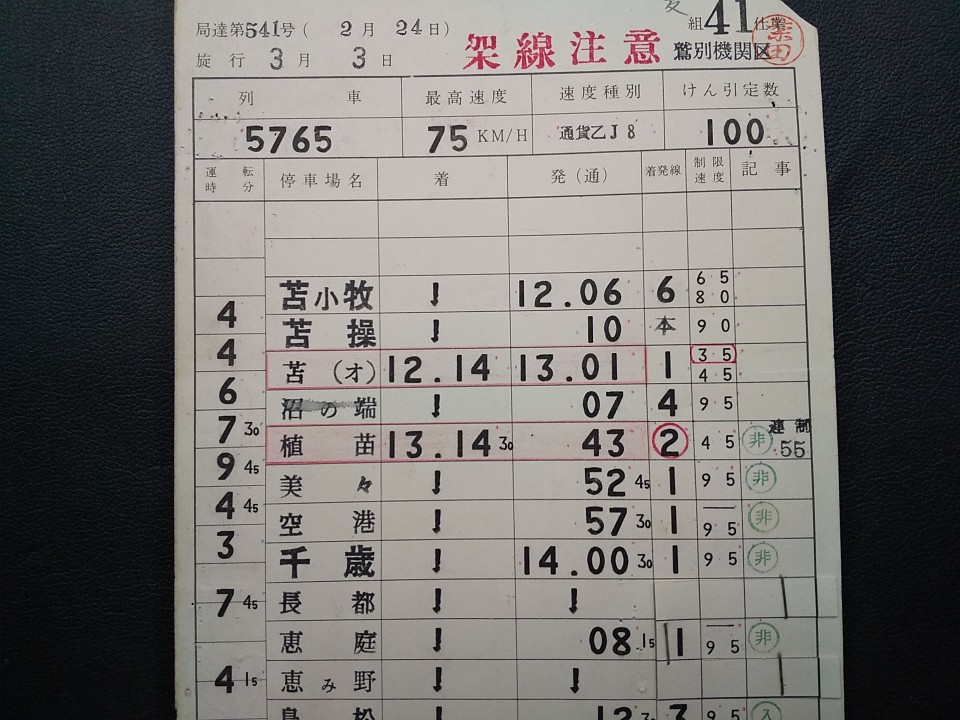 局達第541号( 2月 24日)
組 41 仕業
施行 3月 3日
架線注意 鷲別機関区
列車 最高速度 速度種別 けん引定数
5765 75 KM/H 通貨乙J8 100
運転時分 停車場名 着 発(通) 着発線 制限速度 記事
苫小牧 ↓ 12.06 6 65 80
4
苫操 ↓ 10 本 90
4
苫(オ) 12.14 13.01 1 35 45
6
沼の端 ↓ 07 4 95
7 30 運制
植苗 13.14 30 43 2 45 非 55
9 45
美々 ↓ 52 45 1 95 非
4 45
空港 ↓ 57 30 1 95 非
3
千歳 ↓ 14.00 30 1 95 非
長都 ↓ ↓
7 45
恵庭 ↓ 08 15 1 95 非
恵み野 ↓ ↓
4 15
島松 ↓ 12 3 95 入